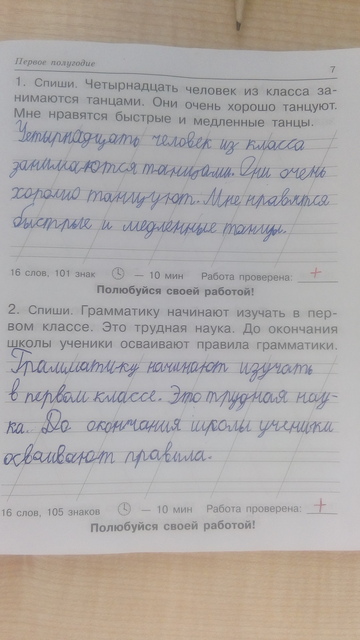 Первое полугодие
7
1. Спиши. Четырнадцать человек из класса за-
нимаются танцами. Они очень хорошо танцуют.
Мне нравятся быстрые и медленные танцы.
Четырнадцать человек из класса
занимаются танцами. Они очень
хорошо танцуют. Мне нравятся
быстрые и медленные танцы.
16 слов, 101 знак — 10 мин Работа проверена: +
Полюбуйся своей работой!
2. Спиши. Грамматику начинают изучать в пер-
вом классе. Это трудная наука. До окончания
школы ученики осваивают правила грамматики.
Грамматику начинают изучать
в первом классе. Это трудная нау-
ка. До окончания школы ученики
осваивают правила.
16 слов, 105 знаков — 10 мин Работа проверена: +
Полюбуйся своей работой!